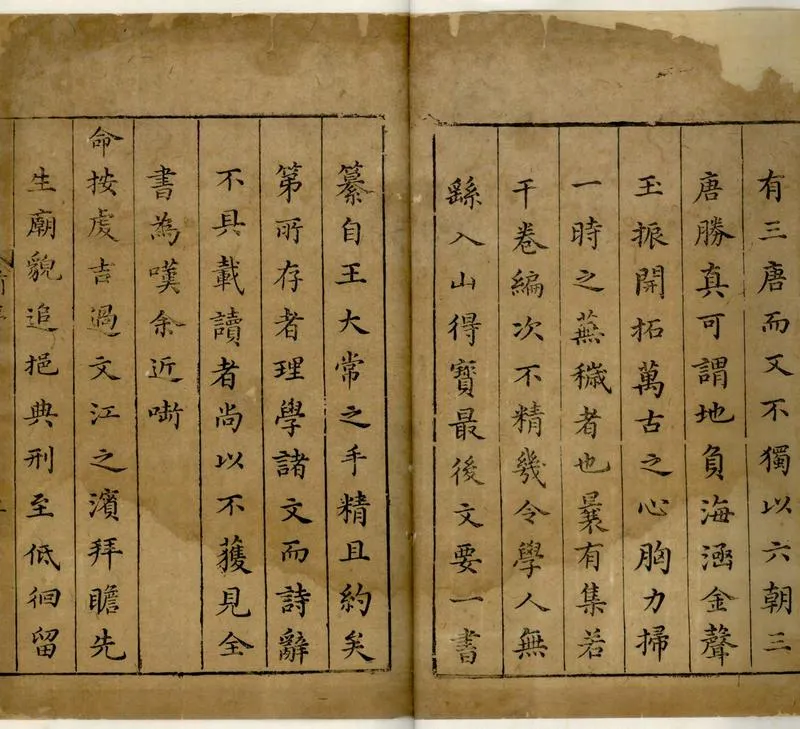 有三唐而又不獨以六朝三
唐勝真可謂地負海涵金聲
玉振開拓萬古之心胸力掃
一時之蕪穢者也曩有集若
干卷編次不精幾令學人無
繇入山得寶最後文要一書
纂自王大常之手精且約矣
第所存者理學諸文而詩辭
不具載讀者尚以不獲見全
書為嘆余近㘅
命按虔吉過文江之濱拜瞻先
生廟貌追挹典刑至低徊留